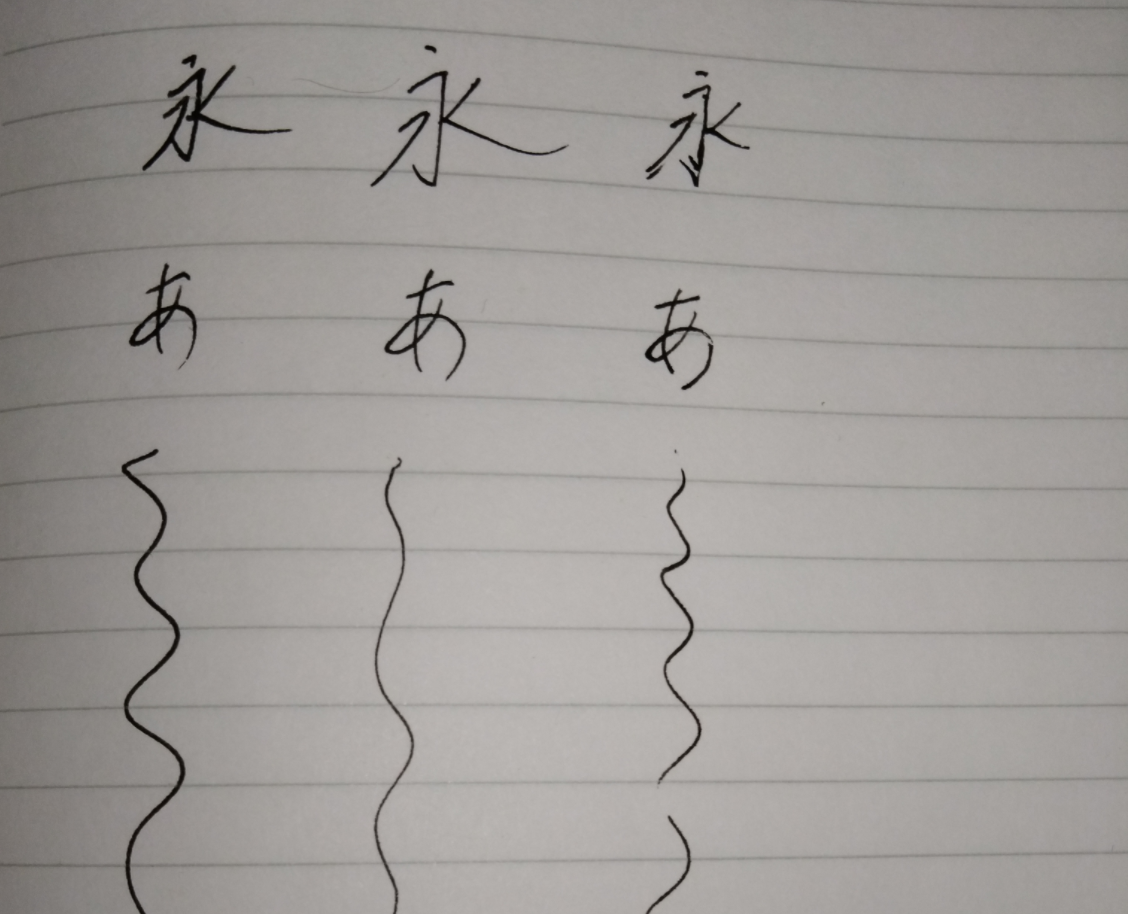 永 永 永
あ あ あ